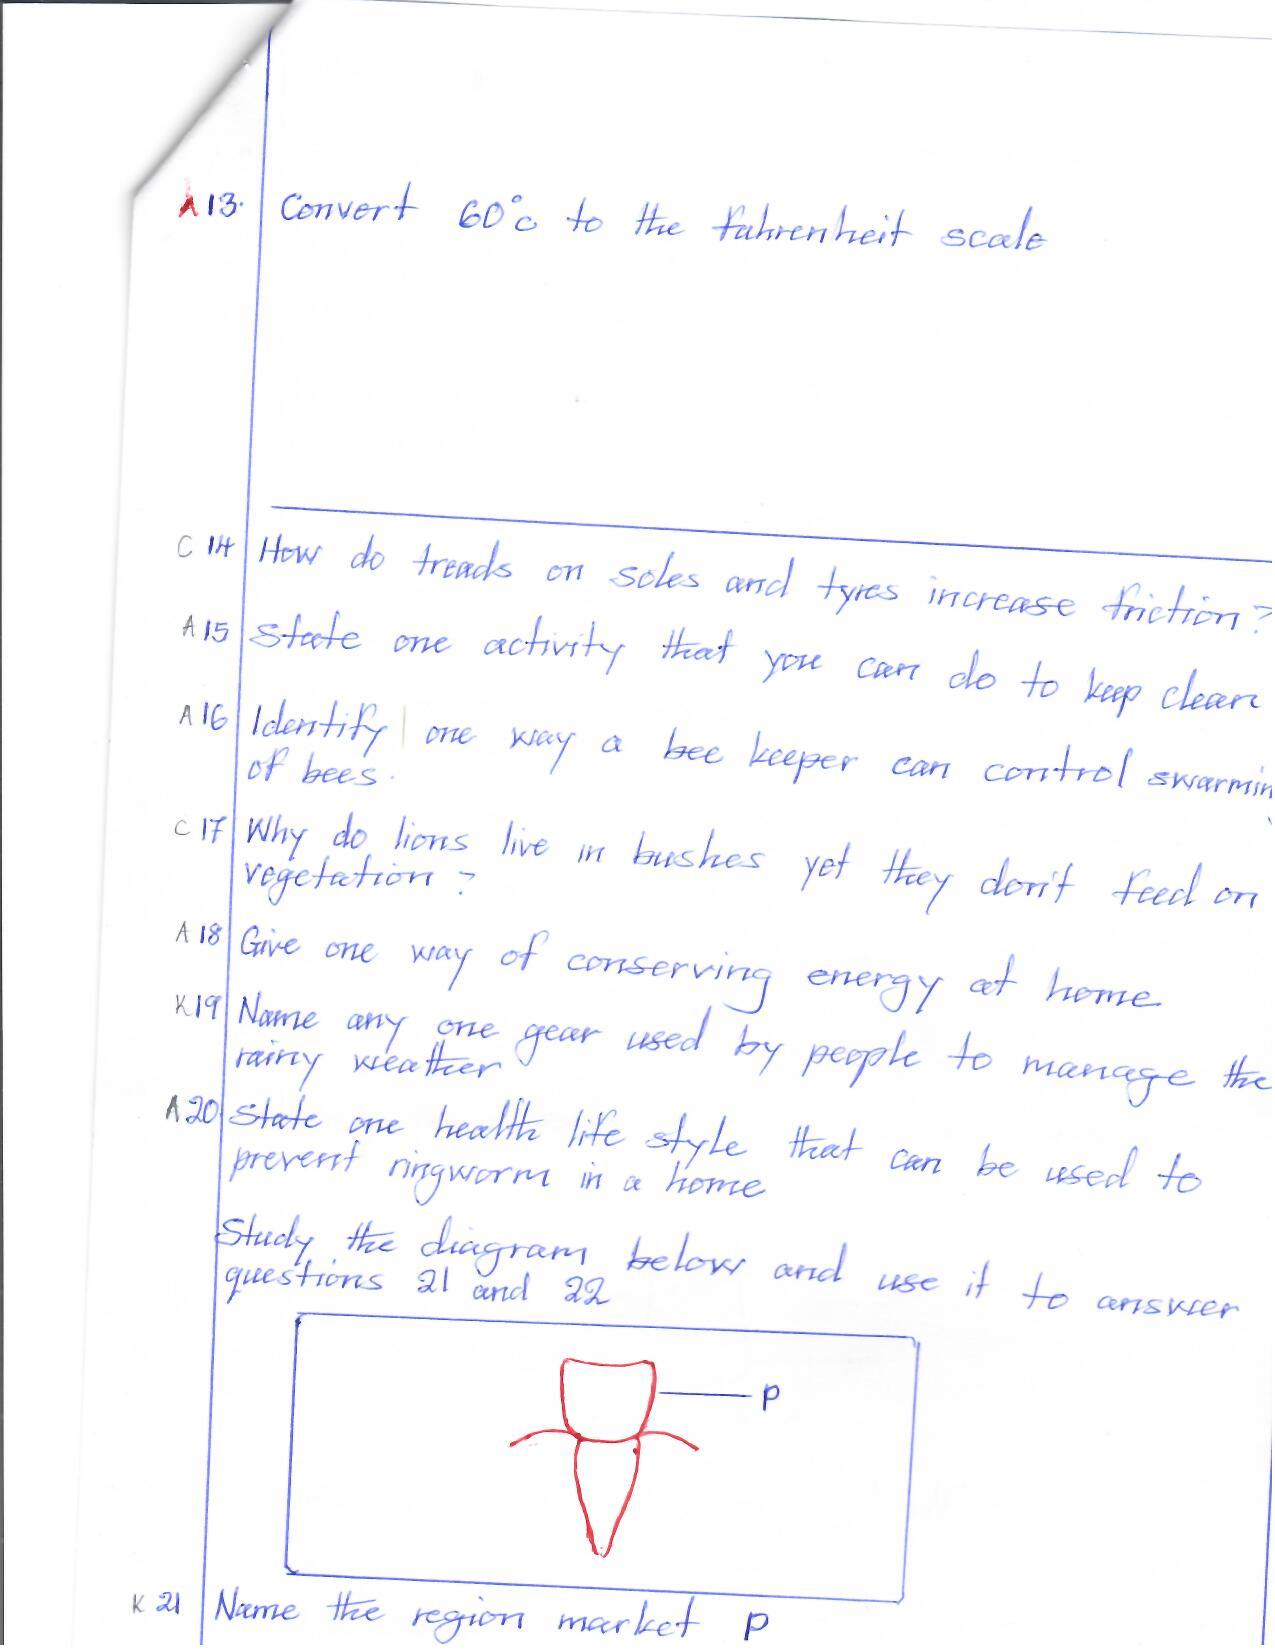 A 13. Convert 60°c to the fahrenheit scale
C 14 How do treads on soles and tyres increase friction?
A 15 State one activity that you can do to keep clean
A 16 Identify one way a bee keeper can control swarmin
of bees.
C 17 Why do lions live in bushes yet they don't feed on
vegetation?
A 18 Give one way of conserving energy at home
K 19 Name any one gear used by people to manage the
rainy weather
A 20 State one health life style that can be used to
prevent ringworm in a home
Study the diagram below and use it to answer
questions 21 and 22
P
K 21 Name the region market P